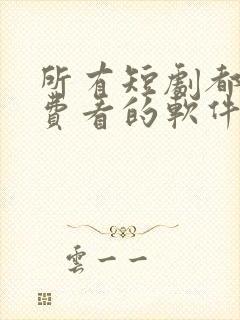 所有短劇都
費看的軟件
雲一一